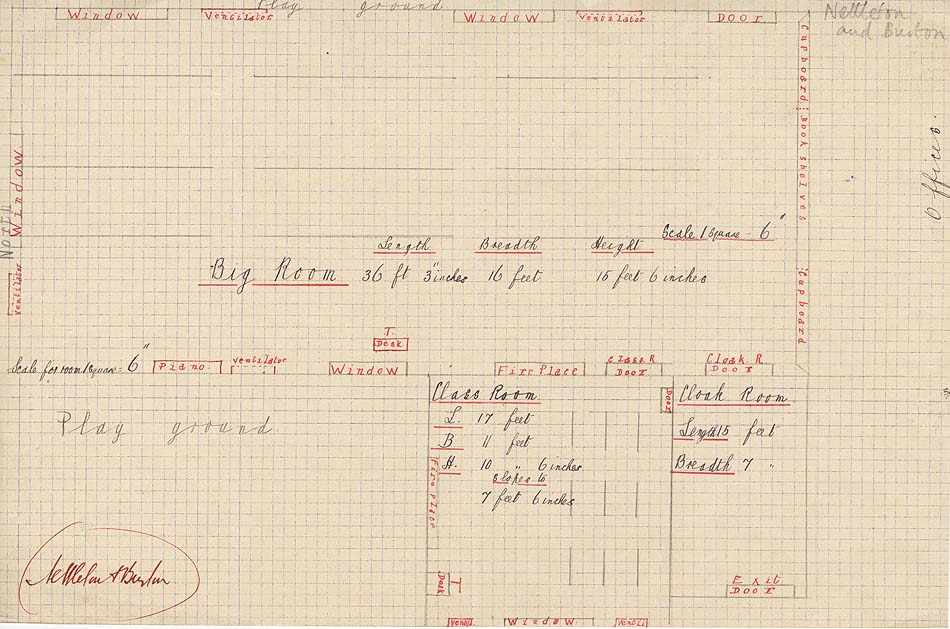 Play ground
Window
Ventilator
Window
Ventilator
Door
Nettleton
and Burton
Cupboard
Book shelves
Cupboard
Offices.
Window
North
Ventilator
Scale 1 Square = 6"
Length Breadth Height
Big Room 36 ft 3"inches 16 feet 15 feet 6 inches
T.
Desk
Scale for room 1 square = 6"
Piano.
Ventilator
Window
Fire Place
Class. R
Door
Cloak R.
Door
Class Room
L. 17 feet
B 11 feet
H. 10 " 6 inches
slopes to
7 feet 6 inches
Fire place
Door
Cloak Room
Length 15 feet
Breadth 7 "
Play ground.
Nettleton & Burton
Desk
T
Exit
Door
Ventil.
Window.
Ventil